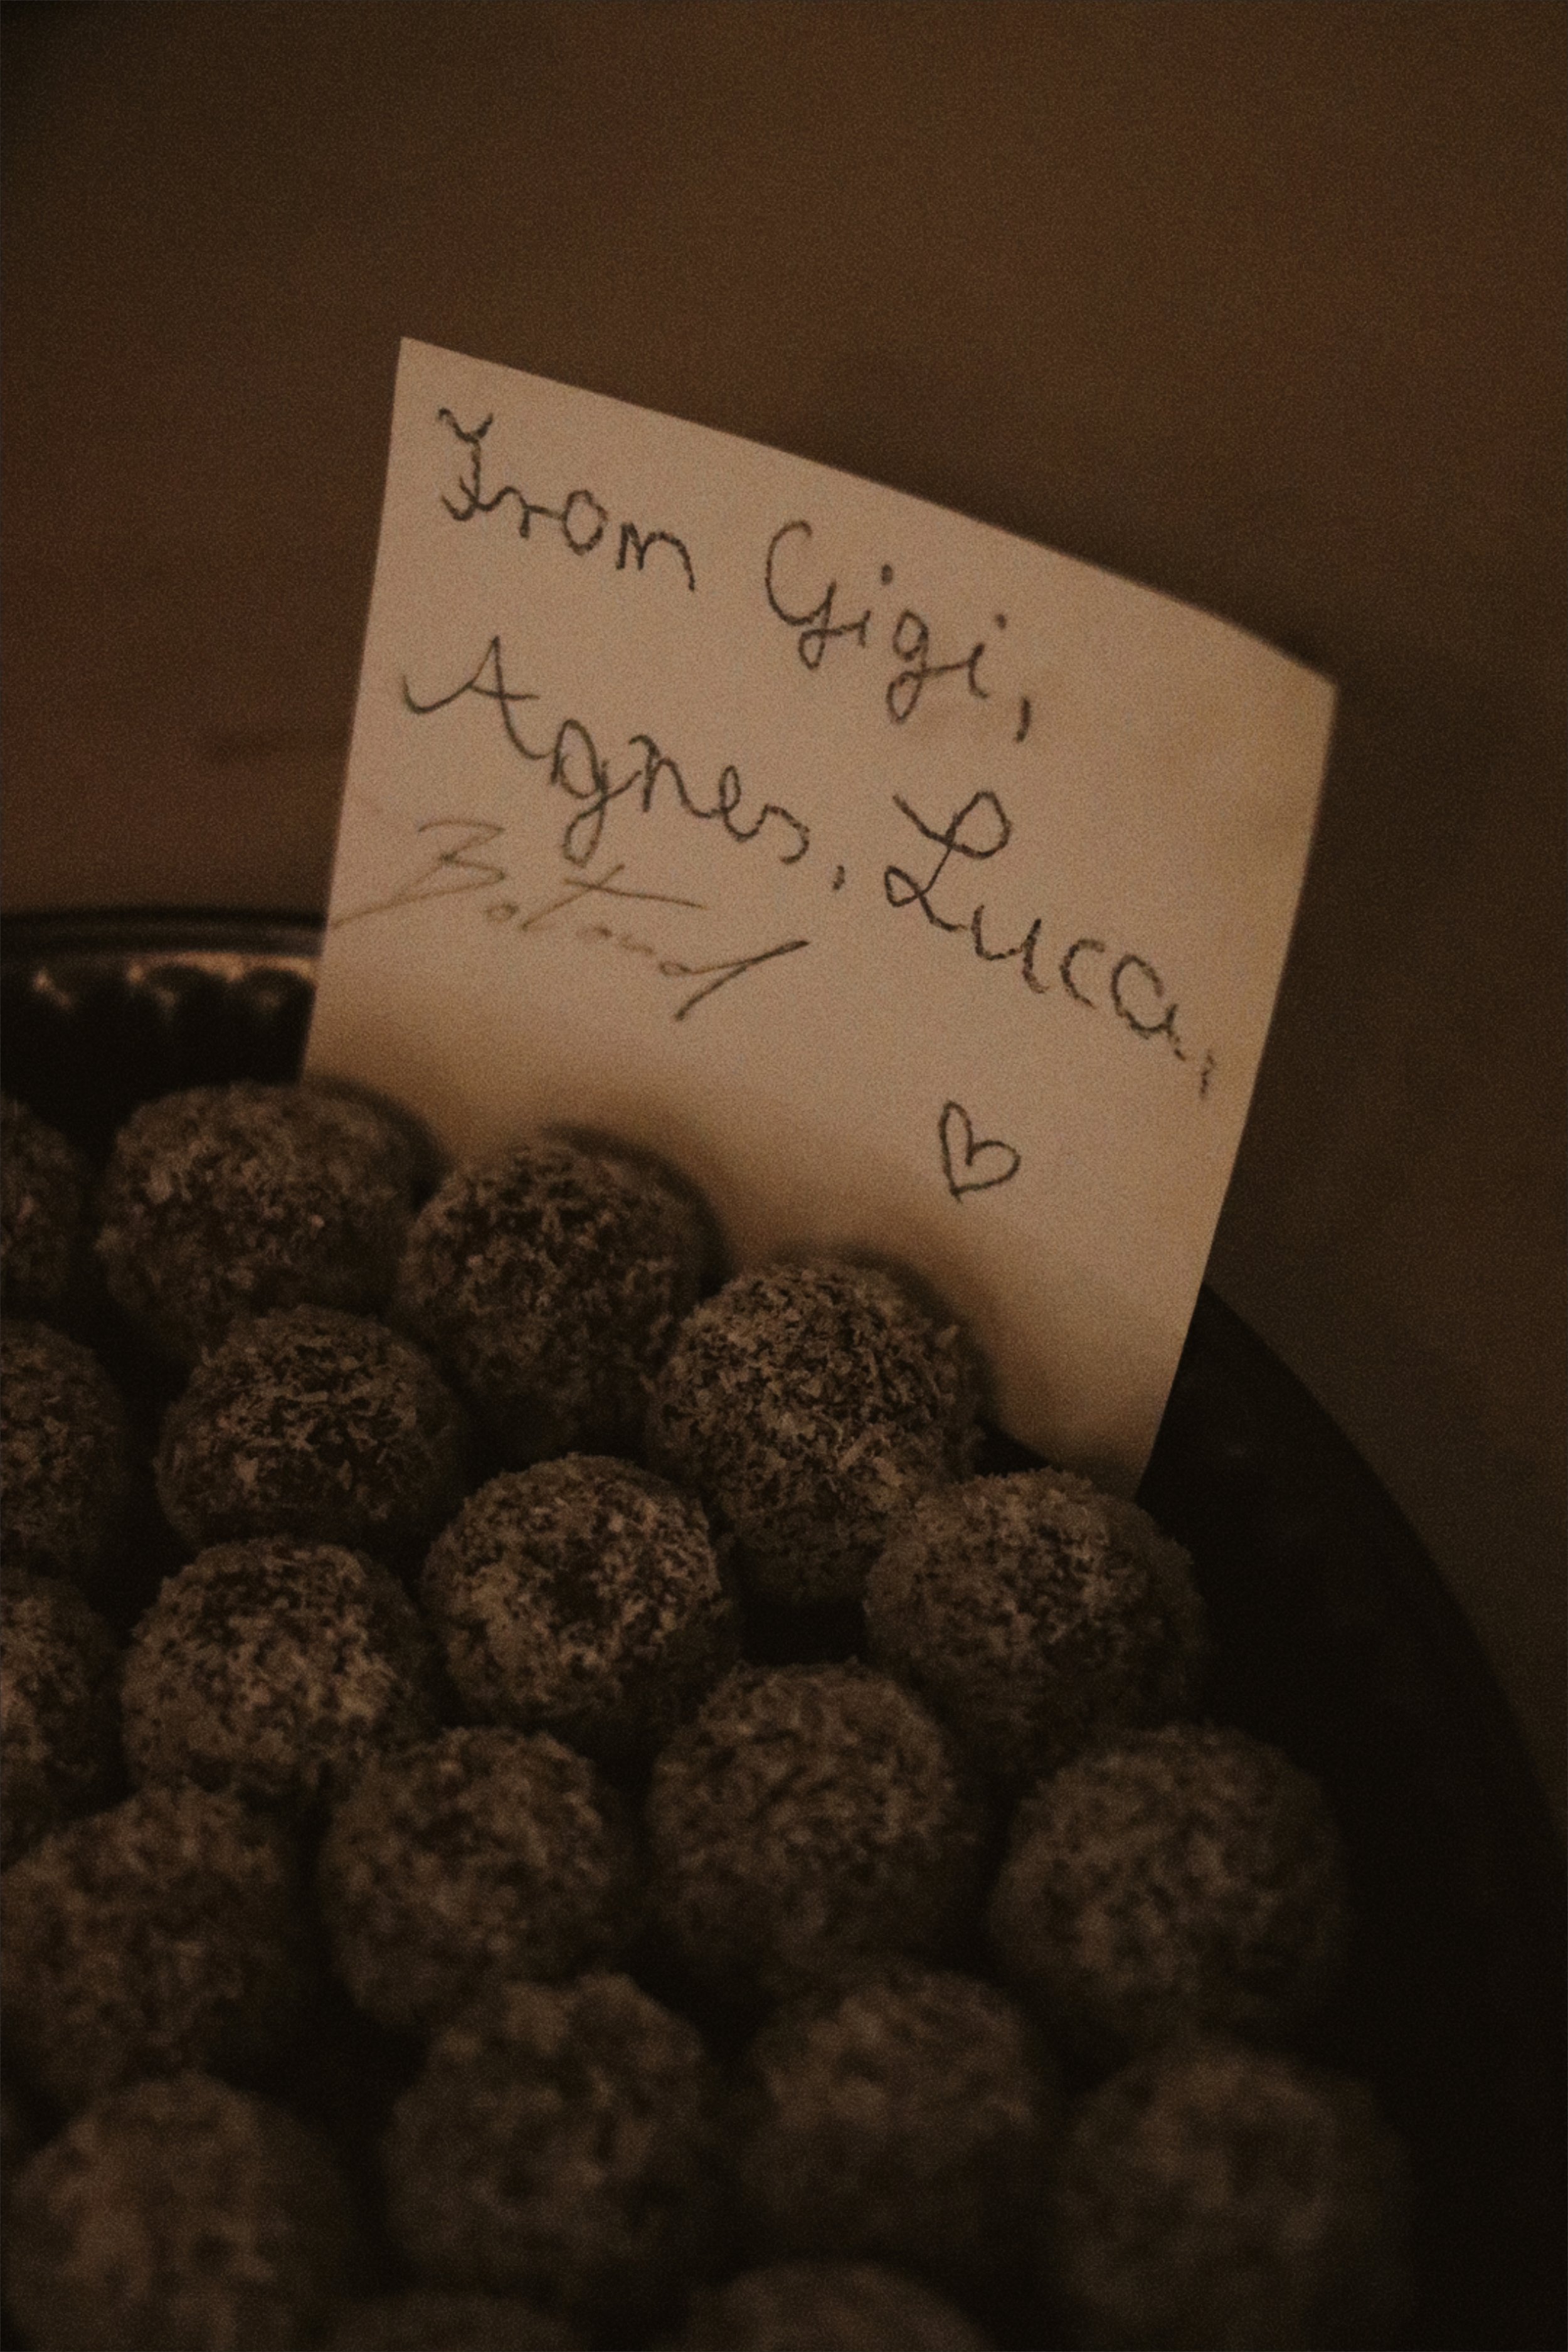 From Gigi,
Agnes, Lucca,
Botond